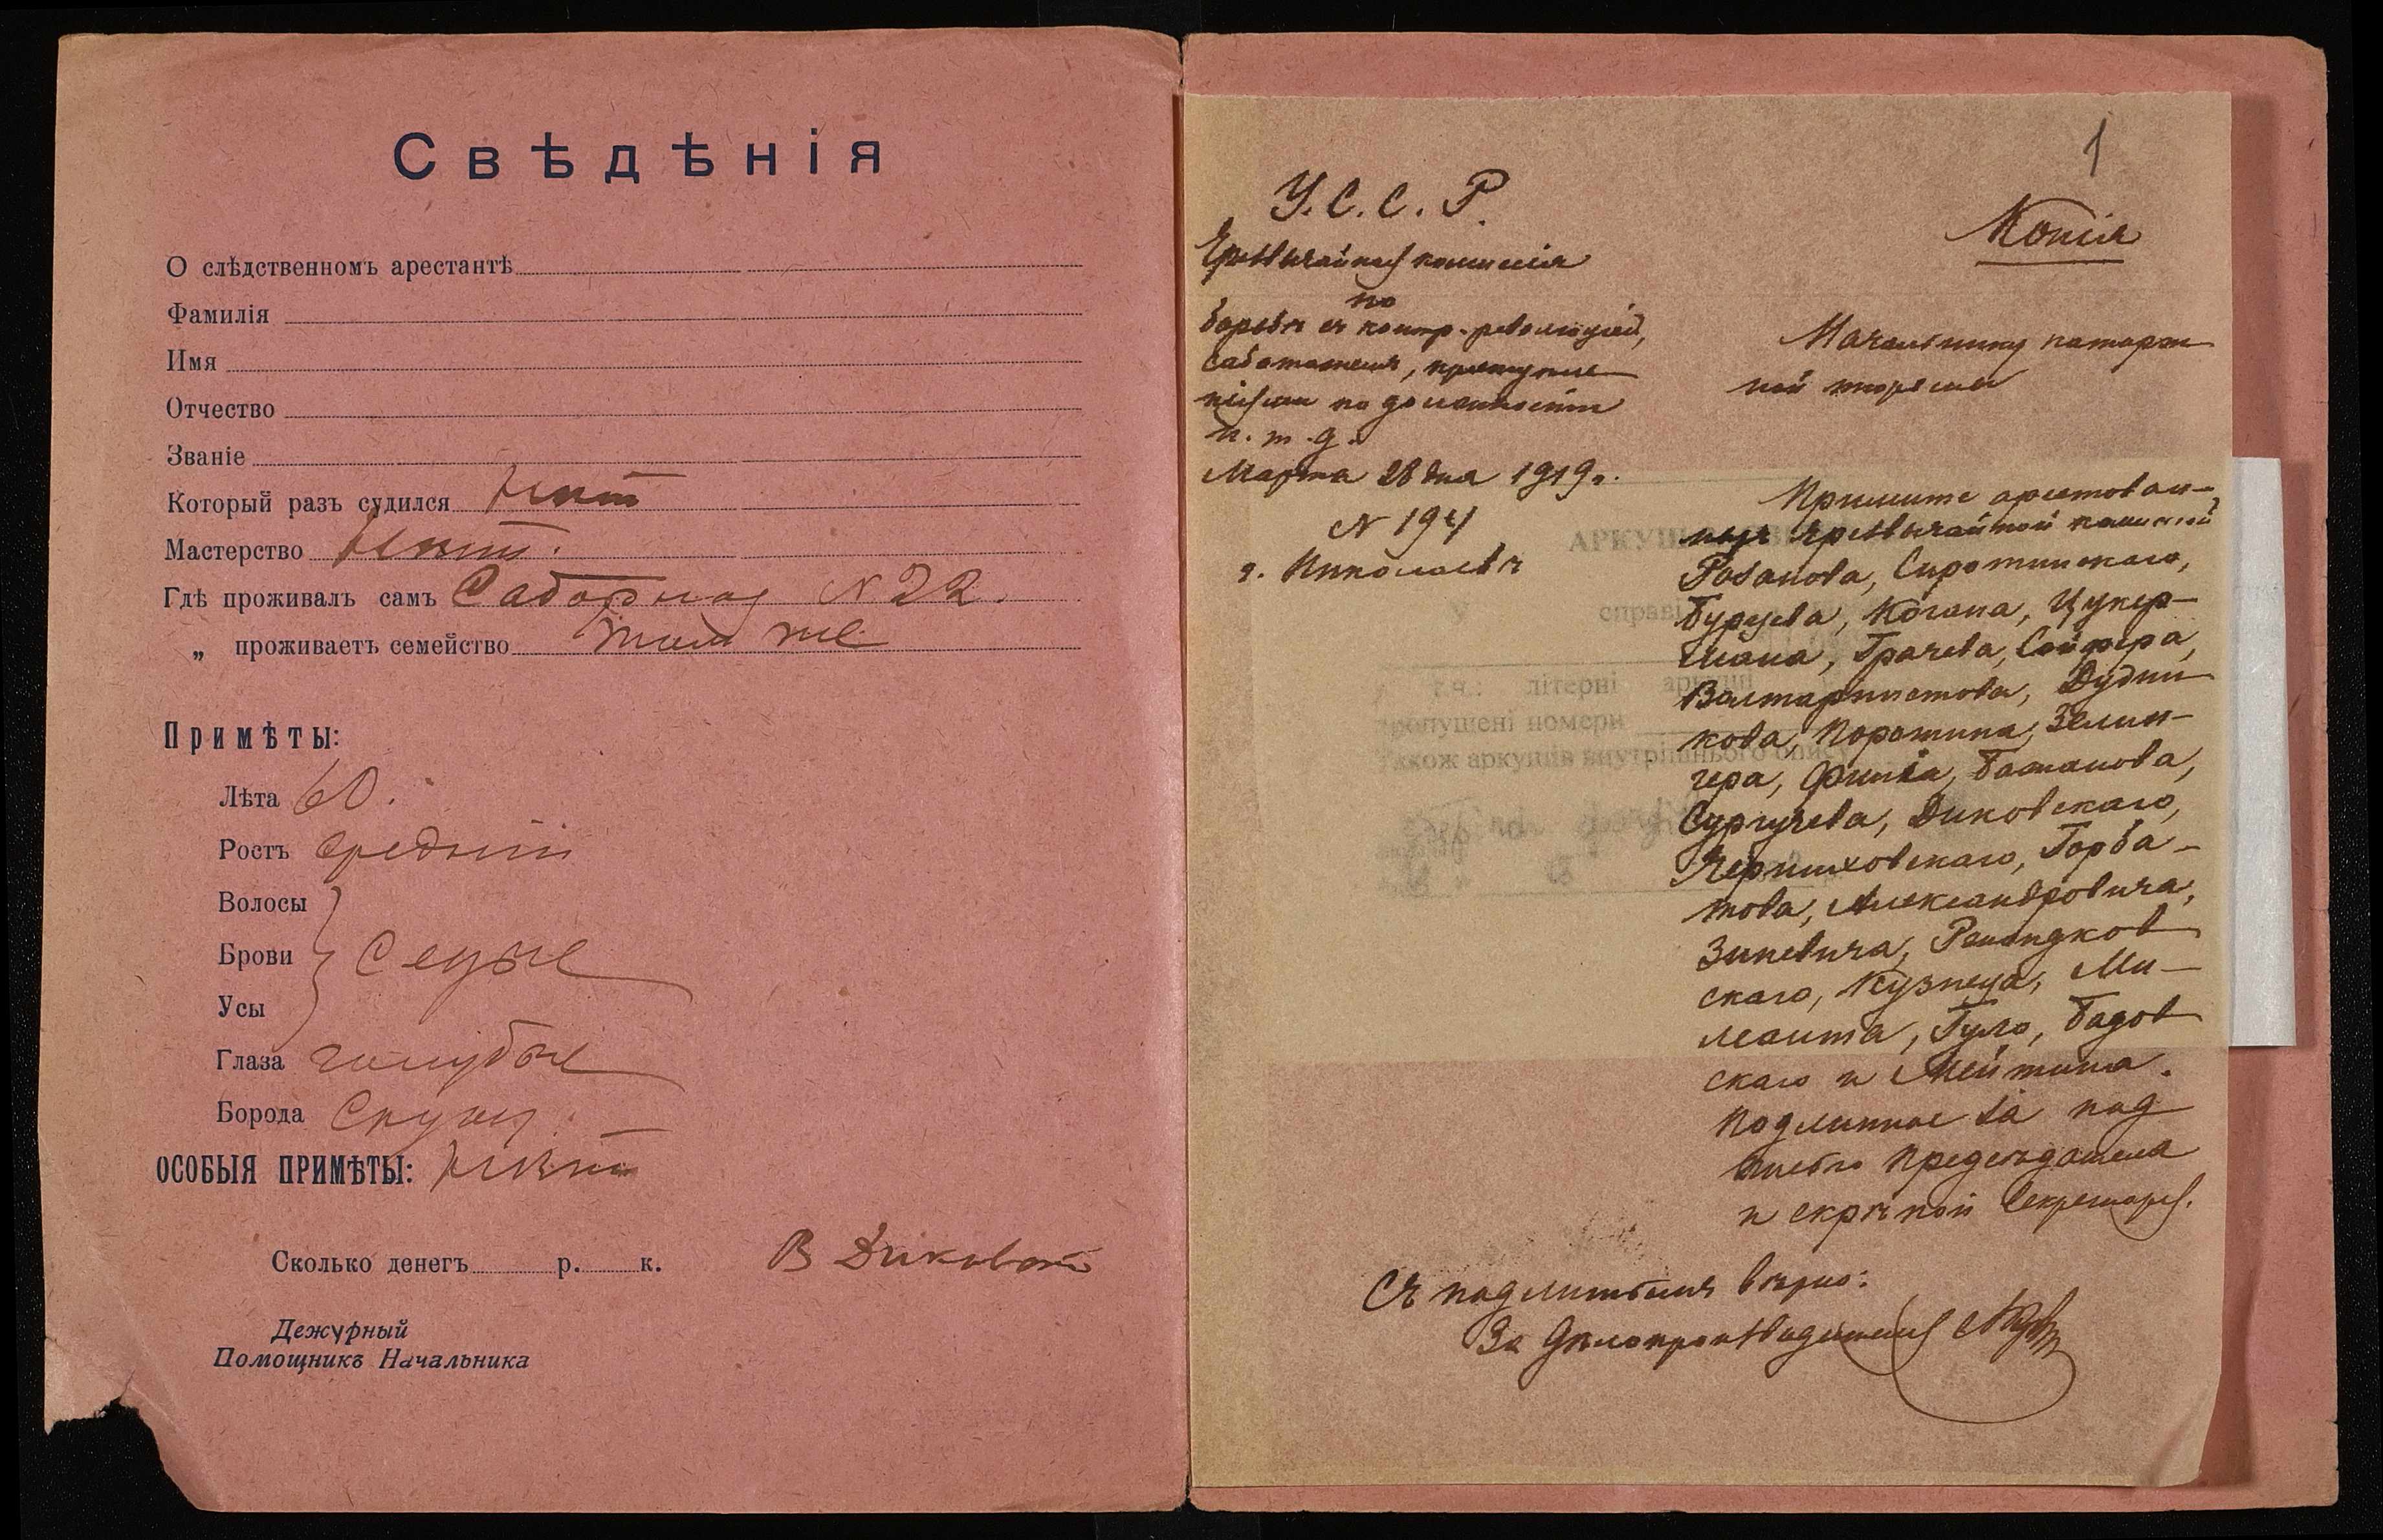 Свѣдѣнія
О слѣдственномъ арестантѣ
Фамилія
Имя
Отчество
Званіе
Который разъ судился Нѣтъ
Мастерство Нѣтъ.
Гдѣ проживалъ самъ Саборная № 22.
„ проживаетъ семейство там же
Примѣты:
Лѣта 60.
Ростъ средній
Волосы
Брови Седые
Усы
Глаза голубые
Борода
ОСОБЫЯ ПРИМѢТЫ: Нѣтъ
Сколько денегъ р. к.
В Диковскій
Дежурный
Помощникъ Начальника
1
У. С. С. Р.
Копія
Чрезвычайная комиссія
по
борьбѣ съ контр-революціей,
саботажемъ, преступле-
ніями по должности
и. т. д.
Марта 28 дня 1919 г.
№ 194
г. Николаевъ
Начальнику каторж
ной тюрьмы
Примите арестован-
ныхъ Чрезвычайной комиссіей
Рабанова, Сиротинскаго,
Бурцева, Когана, Цукер-
мана, Грачева, Сойфера,
Дудни-
кова, Порожина, Зелин-
гера, Финка, Баштанова,
Сургучева, Диковскаго,
Черниховскаго, Горба-
това, Александровича,
Зиневича,
скаго, Кузнеца, Ми-
Гуло, Садов
скаго и Мейтина.
Подлинное за под
писью Предсѣдателя
и скрѣпой Секретаря.
Съ подлиннымъ вѣрно:
За Дѣлопроизводителя
АРКУШ
У справі
т.ч.: літерні аркуші
пропущені номери
також аркушів внутрішнього опису